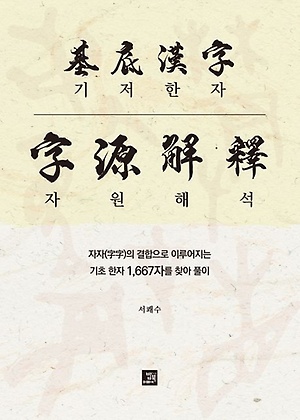 基底漢字
기저한자
字源解釋
자원해석
자자(字字)의 결합으로 이루어지는
기초 한자 1,667자를 찾아 풀이
서쾌수